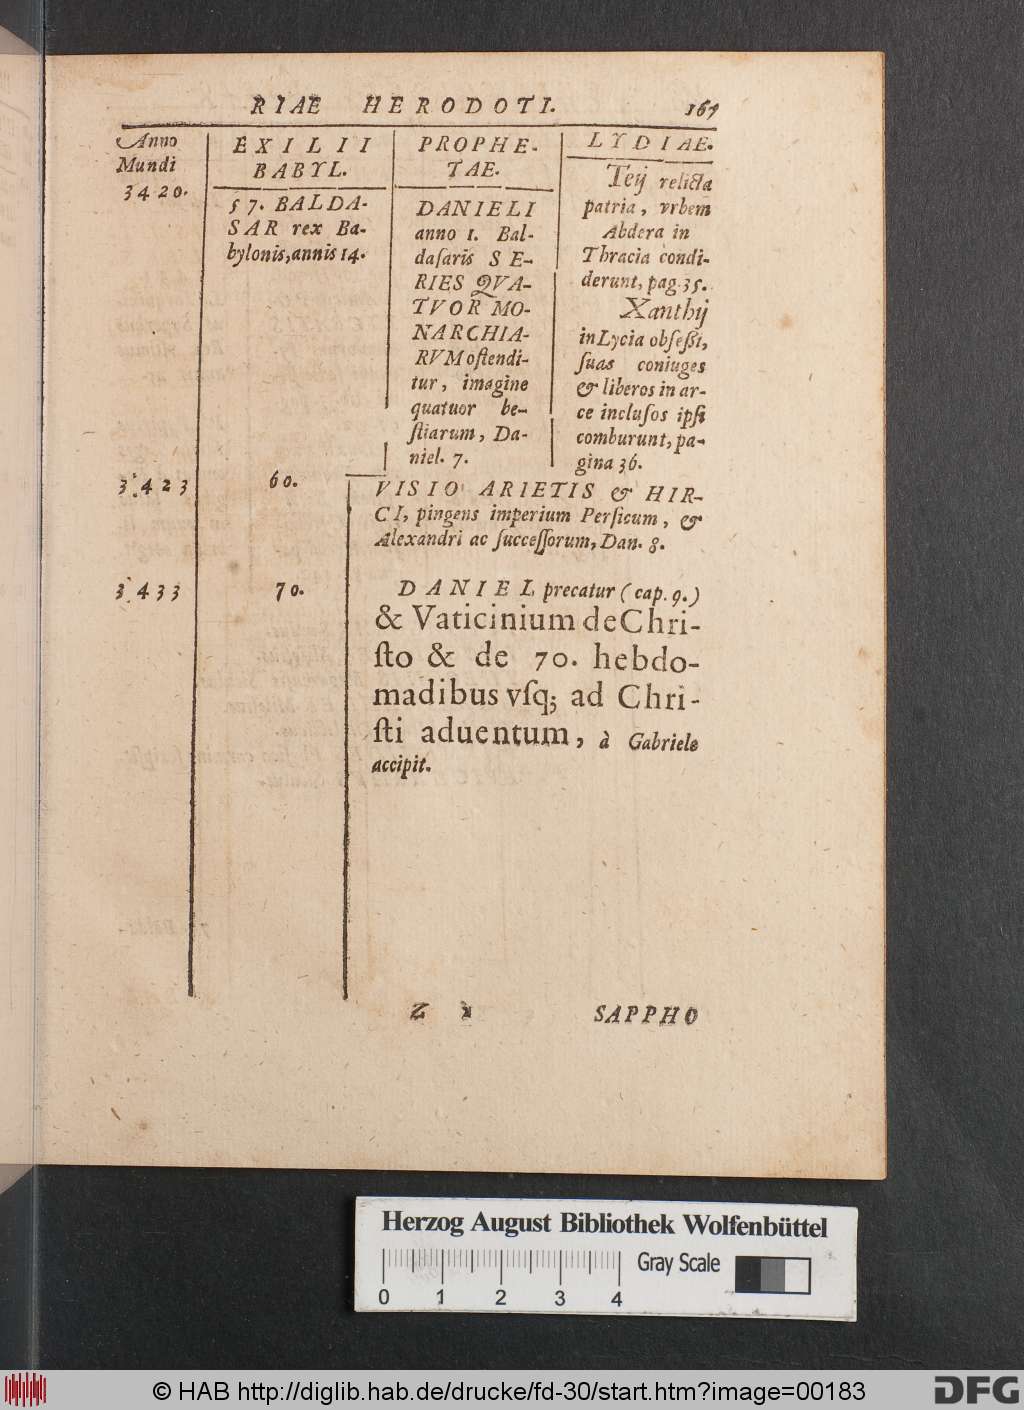 RIAE HERODOTI. 167
Anno
Mundi
3420.
EXILII
BABYL.
57. BALDA-
SAR rex Ba-
bylonis, annis 14.
PROPHE-
TAE.
DANIELI
anno 1. Bal-
daſaris SE-
RIES QVA-
TVOR MO-
NARCHIA-
RVM oſtendi-
tur, imagine
quatuor be-
ſtiarum, Da-
niel. 7.
LYDIAE.
Teij relicta
patria, vrbem
Abdera in
Thracia condi-
derunt, pag. 35.
Xanthij
in Lycia obſeßi,
ſuas coniuges
& liberos in ar-
ce incluſos ipſi
comburunt, pa-
gina 36.
3423 60. VISIO ARIETIS & HIR-
CI, pingens imperium Perſicum, &
Alexandri ac ſucceſſorum, Dan. 8.
3433 70. DANIEL precatur (cap. 9.)
& Vaticinium de Chri-
ſto & de 70. hebdo-
madibus vſq; ad Chri-
ſti aduentum, à Gabriele
accipit.
Z SAPPHO
Herzog August Bibliothek Wolfenbüttel
Gray Scale
0 1 2 3 4
© HAB http://diglib.hab.de/drucke/fd-30/start.htm?image=00183 DFG